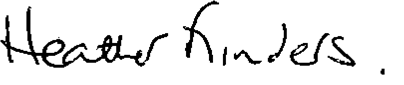 Heather Kinders.